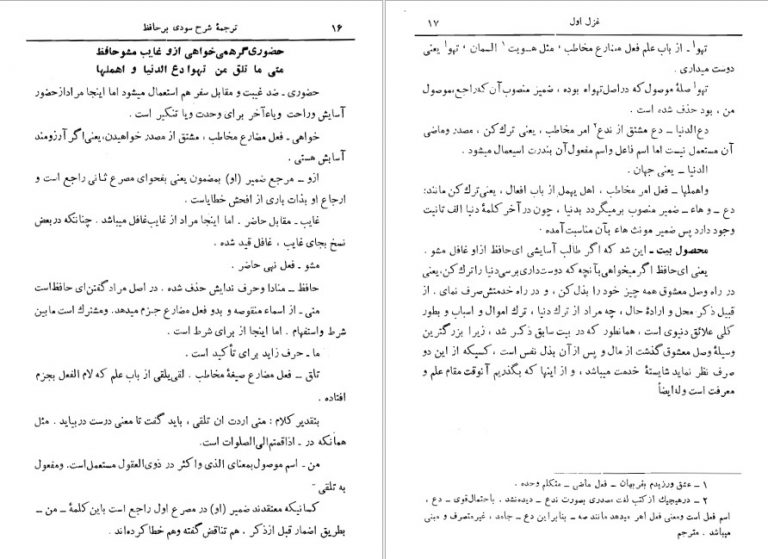 ۱۶
ترجمهٔ شرح سودی بر حافظ
حضوری گر همی خواهی ازو غایب مشو حافظ
متی ما تلق من تهوا دع الدنیا و اهملها
حضوری ـ ضد غیبت و مقابل سفر هم استعمال میشود اما اینجا مراد از حضور
آسایش وراحت ویاء آخر برای وحدت ویا تنکیر است .
خواهی ـ فعل مضارع مخاطب ، مشتق از مصدر خواهیدن، یعنی اگر آرزومند
آسایش هستی .
ازو ـ مرجع ضمیر (او) بمضمون یعنی بفحوای مصرع ثانی راجع است و
ارجاع او بذات باری از افحش خطایاست .
غایب ـ مقابل حاضر . اما اینجا مراد از غایب غافل میباشد . چنانکه در بعض
نسخ بجای غایب ، غافل قید شده .
مشو ـ فعل نهی حاضر .
حافظ ـ منادا وحرف ندایش حذف شده . در اصل مراد گفتن ای حافظ است
متی ـ از اسماء منقوصه و بدو فعل مضارع جزم میدهد. ومشترك است مابین
شرط واستفهام . اما اینجا از برای شرط است .
ما ـ حرف زاید برای تأکید است .
تلق ـ فعل مضارع صیغهٔ مخاطب . لقی یلقی از باب علم که لام الفعل بجزم
افتاده .
بتقدیر کلام : متی اردت ان تلقی ، باید گفت تا معنی درست دربیاید . مثل
همانکه در ـ اذاقمتم الی الصلوات است.
من ـ اسم موصول بمعنای الذی واکثر در ذوی العقول مستعمل است. ومفعول
به تلقی ـ
کسانیکه معتقدند ضمیر (او) در مصرع اول راجع است باین کلمهٔ ـ من ـ
بطریق اضمار قبل از ذکر ، هم تناقض گفته وهم خطا کرده اند .
غزل اول
۱۷
تهوا ـ از باب علم فعل مضارع مخاطب ، مثل هویت السمان ، تهوا یعنی
دوست میداری .
تهوا صلهٔ موصول که در اصل تهواه بوده ، ضمیر منصوب آن که راجع بموصول
من ، بود حذف شده است .
دع الدنیا ـ دع مشتق از ندع ۲ امر مخاطب ، یعنی ترك کن ، مصدر وماضی
آن مستعمل نیست اما اسم فاعل واسم مفعول آن بندرت استعمال میشود .
الدنیا ـ یعنی جهان .
واهملها ـ فعل امر مخاطب ، اهل یهمل از باب افعال ، یعنی ترك کن مانند:
دع ـ و هاء ـ ضمیر منصوب برمیگردد بدنیا ، چون در آخر کلمهٔ دنیا الف تانیث
وجود دارد پس ضمیر مونث هاء بآن مناسبت آمده ·
محصول بیت ـ این شد که اگر طالب آسایشی ای حافظ ازاو غافل مشو .
یعنی ای حافظ اگر میخواهی بآنچه که دوست داری برسی دنیا را ترك کن. یعنی
در راه وصل معشوق همه چیز خود را بذل کن ، و در راه خدمتش صرف نمای . از
قبیل ذکر محل و ارادهٔ حال ، چه مراد از ترك دنیا ، ترك اموال و اسباب و بطور
کلی علائق دنیوی است ، همانطور که در بیت سابق ذکر شد ، زیرا بزرگترین
وسیلهٔ وصل معشوق گذشت از مال و پس از آن بذل نفس است ، کسیکه از این دو
صرف نظر نماید شایستهٔ خدمت میباشد ، و از اینها که بگذریم آنوقت مقام علم و
معرفت است وله ایضاً
۱ ـ عشق ورزیدم بفربهان ـ فعل ماضی ـ متکلم وحده .
۲ ـ درهیچیك ازکتب لغت مصدری بصورت ندع ـ دیده نشد ، باحتمال قوی ـ دع ،
اسم فعل است ومعنی فعل امر میدهد مانند صه ـ بنابراین دع ـ جامد ، غیرمتصرف و مبنی
میباشد . مترجم